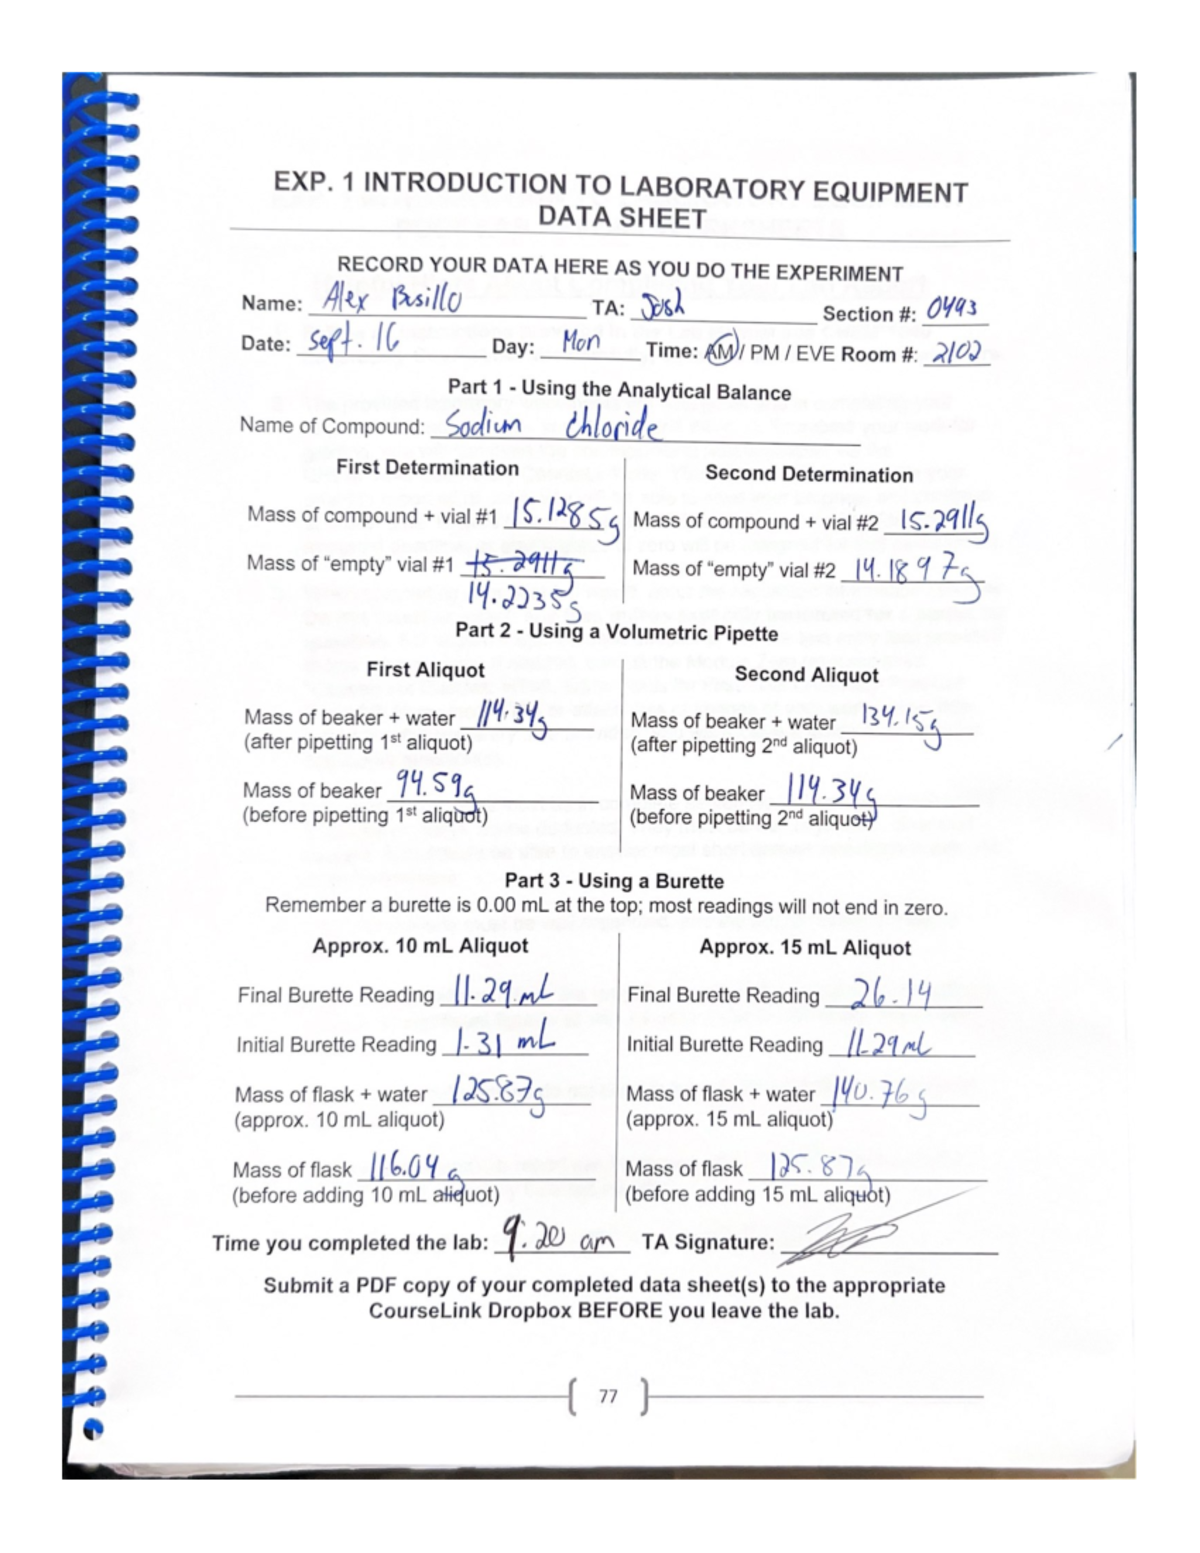 EXP. 1 INTRODUCTION TO LABORATORY EQUIPMENT
DATA SHEET
RECORD YOUR DATA HERE AS YOU DO THE EXPERIMENT
Name: Alex Busillo TA: Josh Section #: 0493
Date: sept. 16 Day: Mon Time: AM / PM / EVE Room #: 2102
Part 1 - Using the Analytical Balance
Name of Compound: Sodium Chloride
First Determination
Mass of compound + vial #1 15.1285g
Mass of “empty” vial #1 15.2911g
14.2235g
Second Determination
Mass of compound + vial #2 15.2911g
Mass of “empty” vial #2 14.1897g
Part 2 - Using a Volumetric Pipette
First Aliquot
Mass of beaker + water 114.34g
(after pipetting 1st aliquot)
Mass of beaker 94.59g
(before pipetting 1st aliquot)
Second Aliquot
Mass of beaker + water 134.15g
(after pipetting 2nd aliquot)
Mass of beaker 114.34g
(before pipetting 2nd aliquot)
Part 3 - Using a Burette
Remember a burette is 0.00 mL at the top; most readings will not end in zero.
Approx. 10 mL Aliquot
Final Burette Reading 11.29 mL
Initial Burette Reading 1.31 mL
Mass of flask + water 125.87g
(approx. 10 mL aliquot)
Mass of flask 116.04 g
(before adding 10 mL aliquot)
Approx. 15 mL Aliquot
Final Burette Reading 26.14
Initial Burette Reading 11.29 mL
Mass of flask + water 140.76g
(approx. 15 mL aliquot)
Mass of flask 125.87g
(before adding 15 mL aliquot)
Time you completed the lab: 9:20 am TA Signature:
Submit a PDF copy of your completed data sheet(s) to the appropriate
CourseLink Dropbox BEFORE you leave the lab.
77